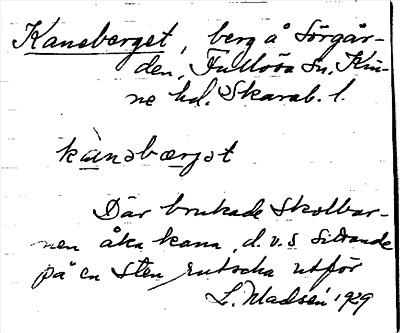 Kanaberget, berg å Sörgår-
den, Fullösa sn. Kin-
ne hd. Skarab. l.
kanabærgət
Där brukade skolbar-
nen åka kana, d.v.s sittande
på en sten rutscha utför
L. Madsén 1929